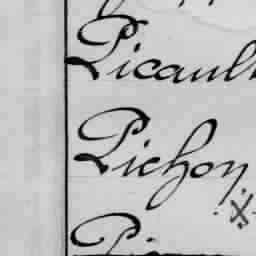 Picault
Pichon